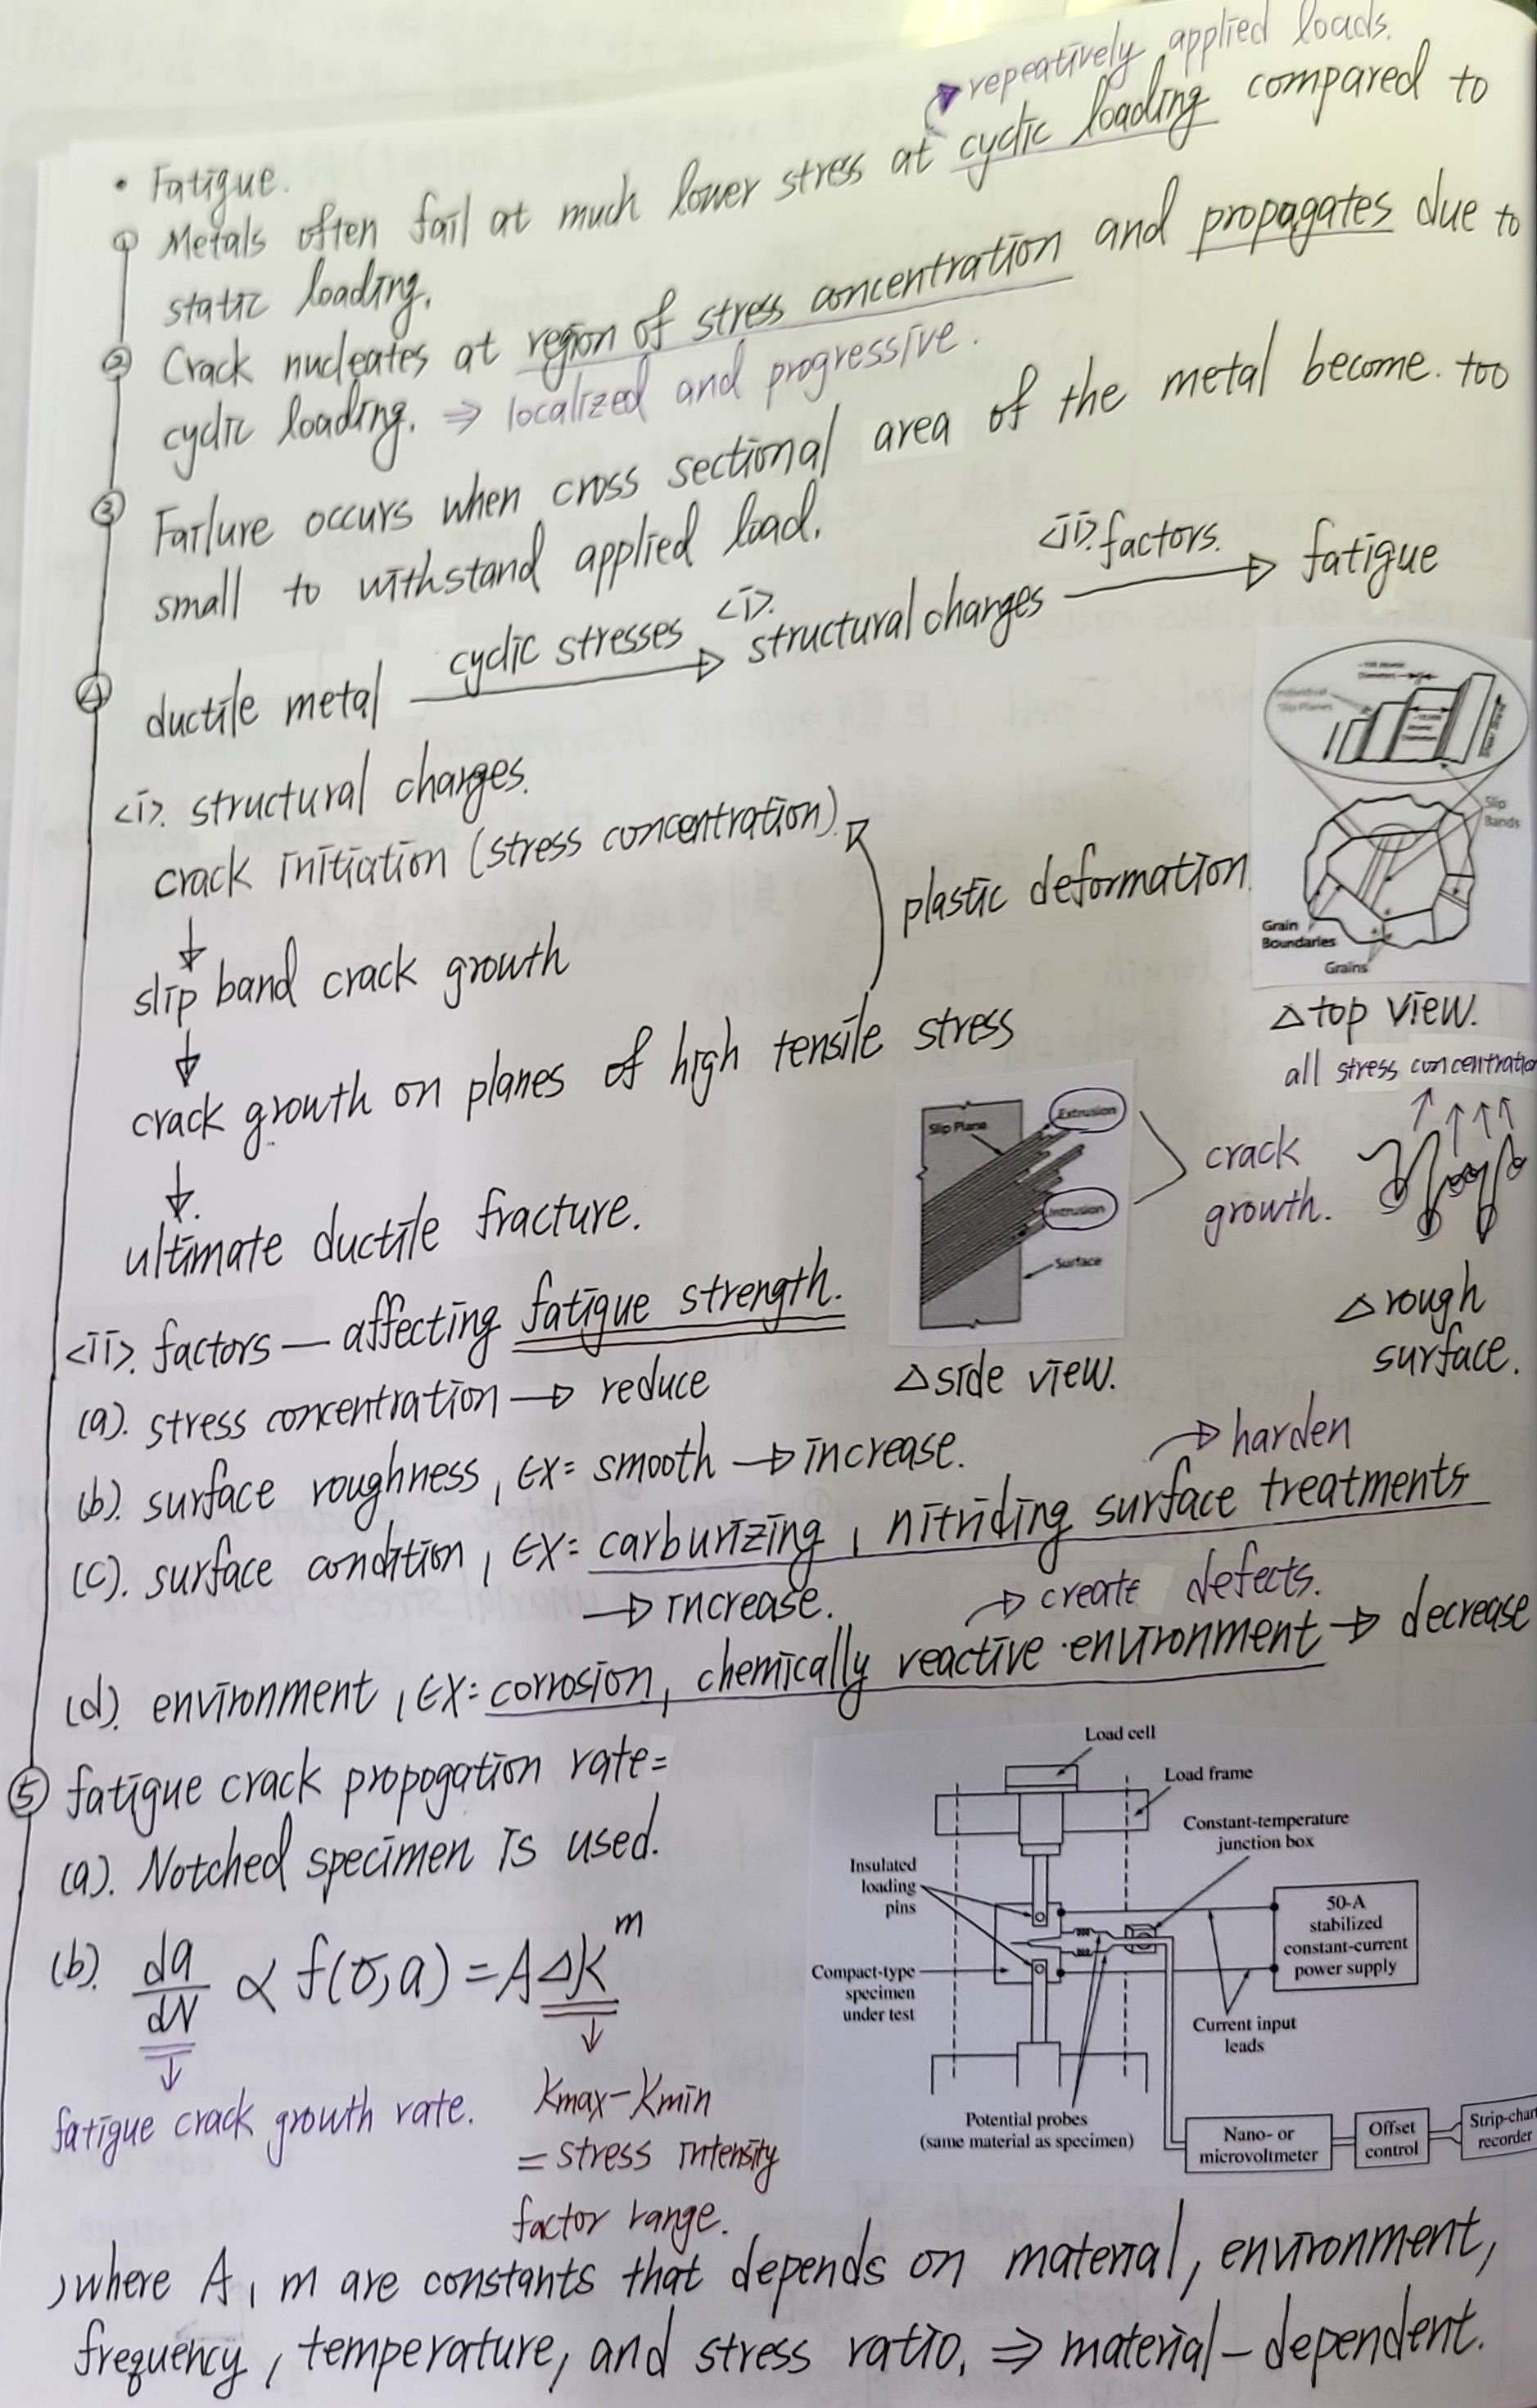 repeatively applied loads.
• Fatigue.
① Metals often fail at much lower stress at cyclic loading compared to
static loading.
② Crack nucleates at region of stress concentration and propagates due to
cyclic loading. ⇒ localized and progressive.
③ Failure occurs when cross sectional area of the metal become. too
small to withstand applied load.
④ ductile metal cyclic stresses → <i>. structural charges <ii>. factors. → fatigue
<i>. structural charges.
crack initiation (stress concentration)
↓
slip band crack growth
↓
crack growth on planes of high tensile stress
↓
ultimate ductile fracture.
plastic deformation.
Individual
Slip Planes
Slip
Bands
Grain
Boundaries
Grains
△ top view.
all stress concentration
Slip Plane
Extrusion
Intrusion
Surface
crack
growth.
△ side view.
△ rough
surface.
<ii>. factors — affecting fatigue strength.
(a). stress concentration → reduce
(b). surface roughness, EX: smooth → increase.
→ harden
(c). surface condition, EX: carburizing, nitriding surface treatments
→ increase.
→ create defects.
(d). environment, EX: corrosion, chemically reactive environment → decrease
⑤ fatigue crack propogation rate=
(a). Notched specimen is used.
(b). da/dN ∝ f(σ,a) = AΔK^m
fatigue crack growth rate.
Kmax-Kmin
= stress intensity
factor range.
Load cell
Load frame
Constant-temperature
junction box
Insulated
loading
pins
50-A
stabilized
constant-current
power supply
Compact-type
specimen
under test
Current input
leads
Potential probes
(same material as specimen)
Nano- or
microvoltmeter
Offset
control
Strip-chart
recorder
, where A, m are constants that depends on material, environment,
frequency, temperature, and stress ratio. ⇒ material-dependent.